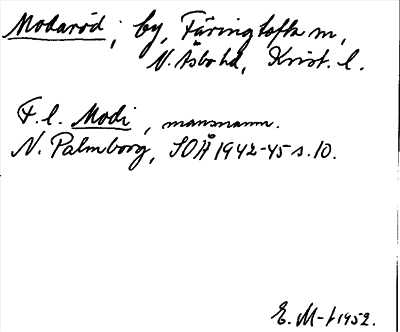 Modaröd, by, Färingtofta sn,
N. Åsbo hd, Krist. l.
F. l. Modi, mansnamn.
N. Palmborg, SOÅ 1942-45 s. 10.
E. M-f 1952.